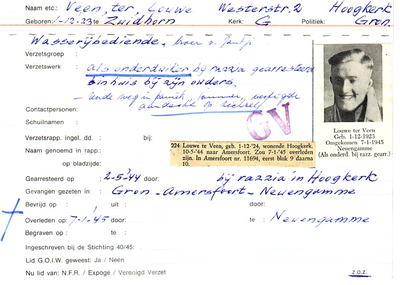 Naam etc.: Veen, ter, Louwe Westerstr. 2 Hoogkerk
Geboren: 1-12-23 te Zuidhorn Kerk: G Politiek: Gron.
Wasserijbediende,
Verzetsgroep:
Verzetswerk: als onderduiker bij razzia gearresteerd
binhuis bij zijn ouders.
Contactpersonen:
Schuilnaam:
GV
Verzetsrapp. ingel. dd. : bij:
Naam genoemd in rapp. :
op bladzijde:
224 Louwe te Veen, geb. 1-12-'24, wonende Hoogkerk,
10-5-'44 naar Amersfoort. Zou 7-1-'45 overleden
zijn. In Amersfoort nr. 11694, eerst blik 9 daarna
10.
Louwe ter Veen
Geb. 1-12-1923
Omgekomen 7-1-1945
Neuengamme
(Als onderd. bij razz. gearr.)
Gearresteerd op : 2-5-'44 bij razzia in Hoogkerk
Gevangen gezeten in: Gron - Amersfoort - Neuengamme
Bevrijd op : uit: door:
Overleden op : 7-1-'45 door: te : Neuengamme
Begraven op : te :
Ingeschreven bij de Stichting 40/45:
Lid G.O.I.W. geweest: Ja / Neen
Nu lid van: N.F.R. / Expogé / Verenigd Verzet
z.o.z.